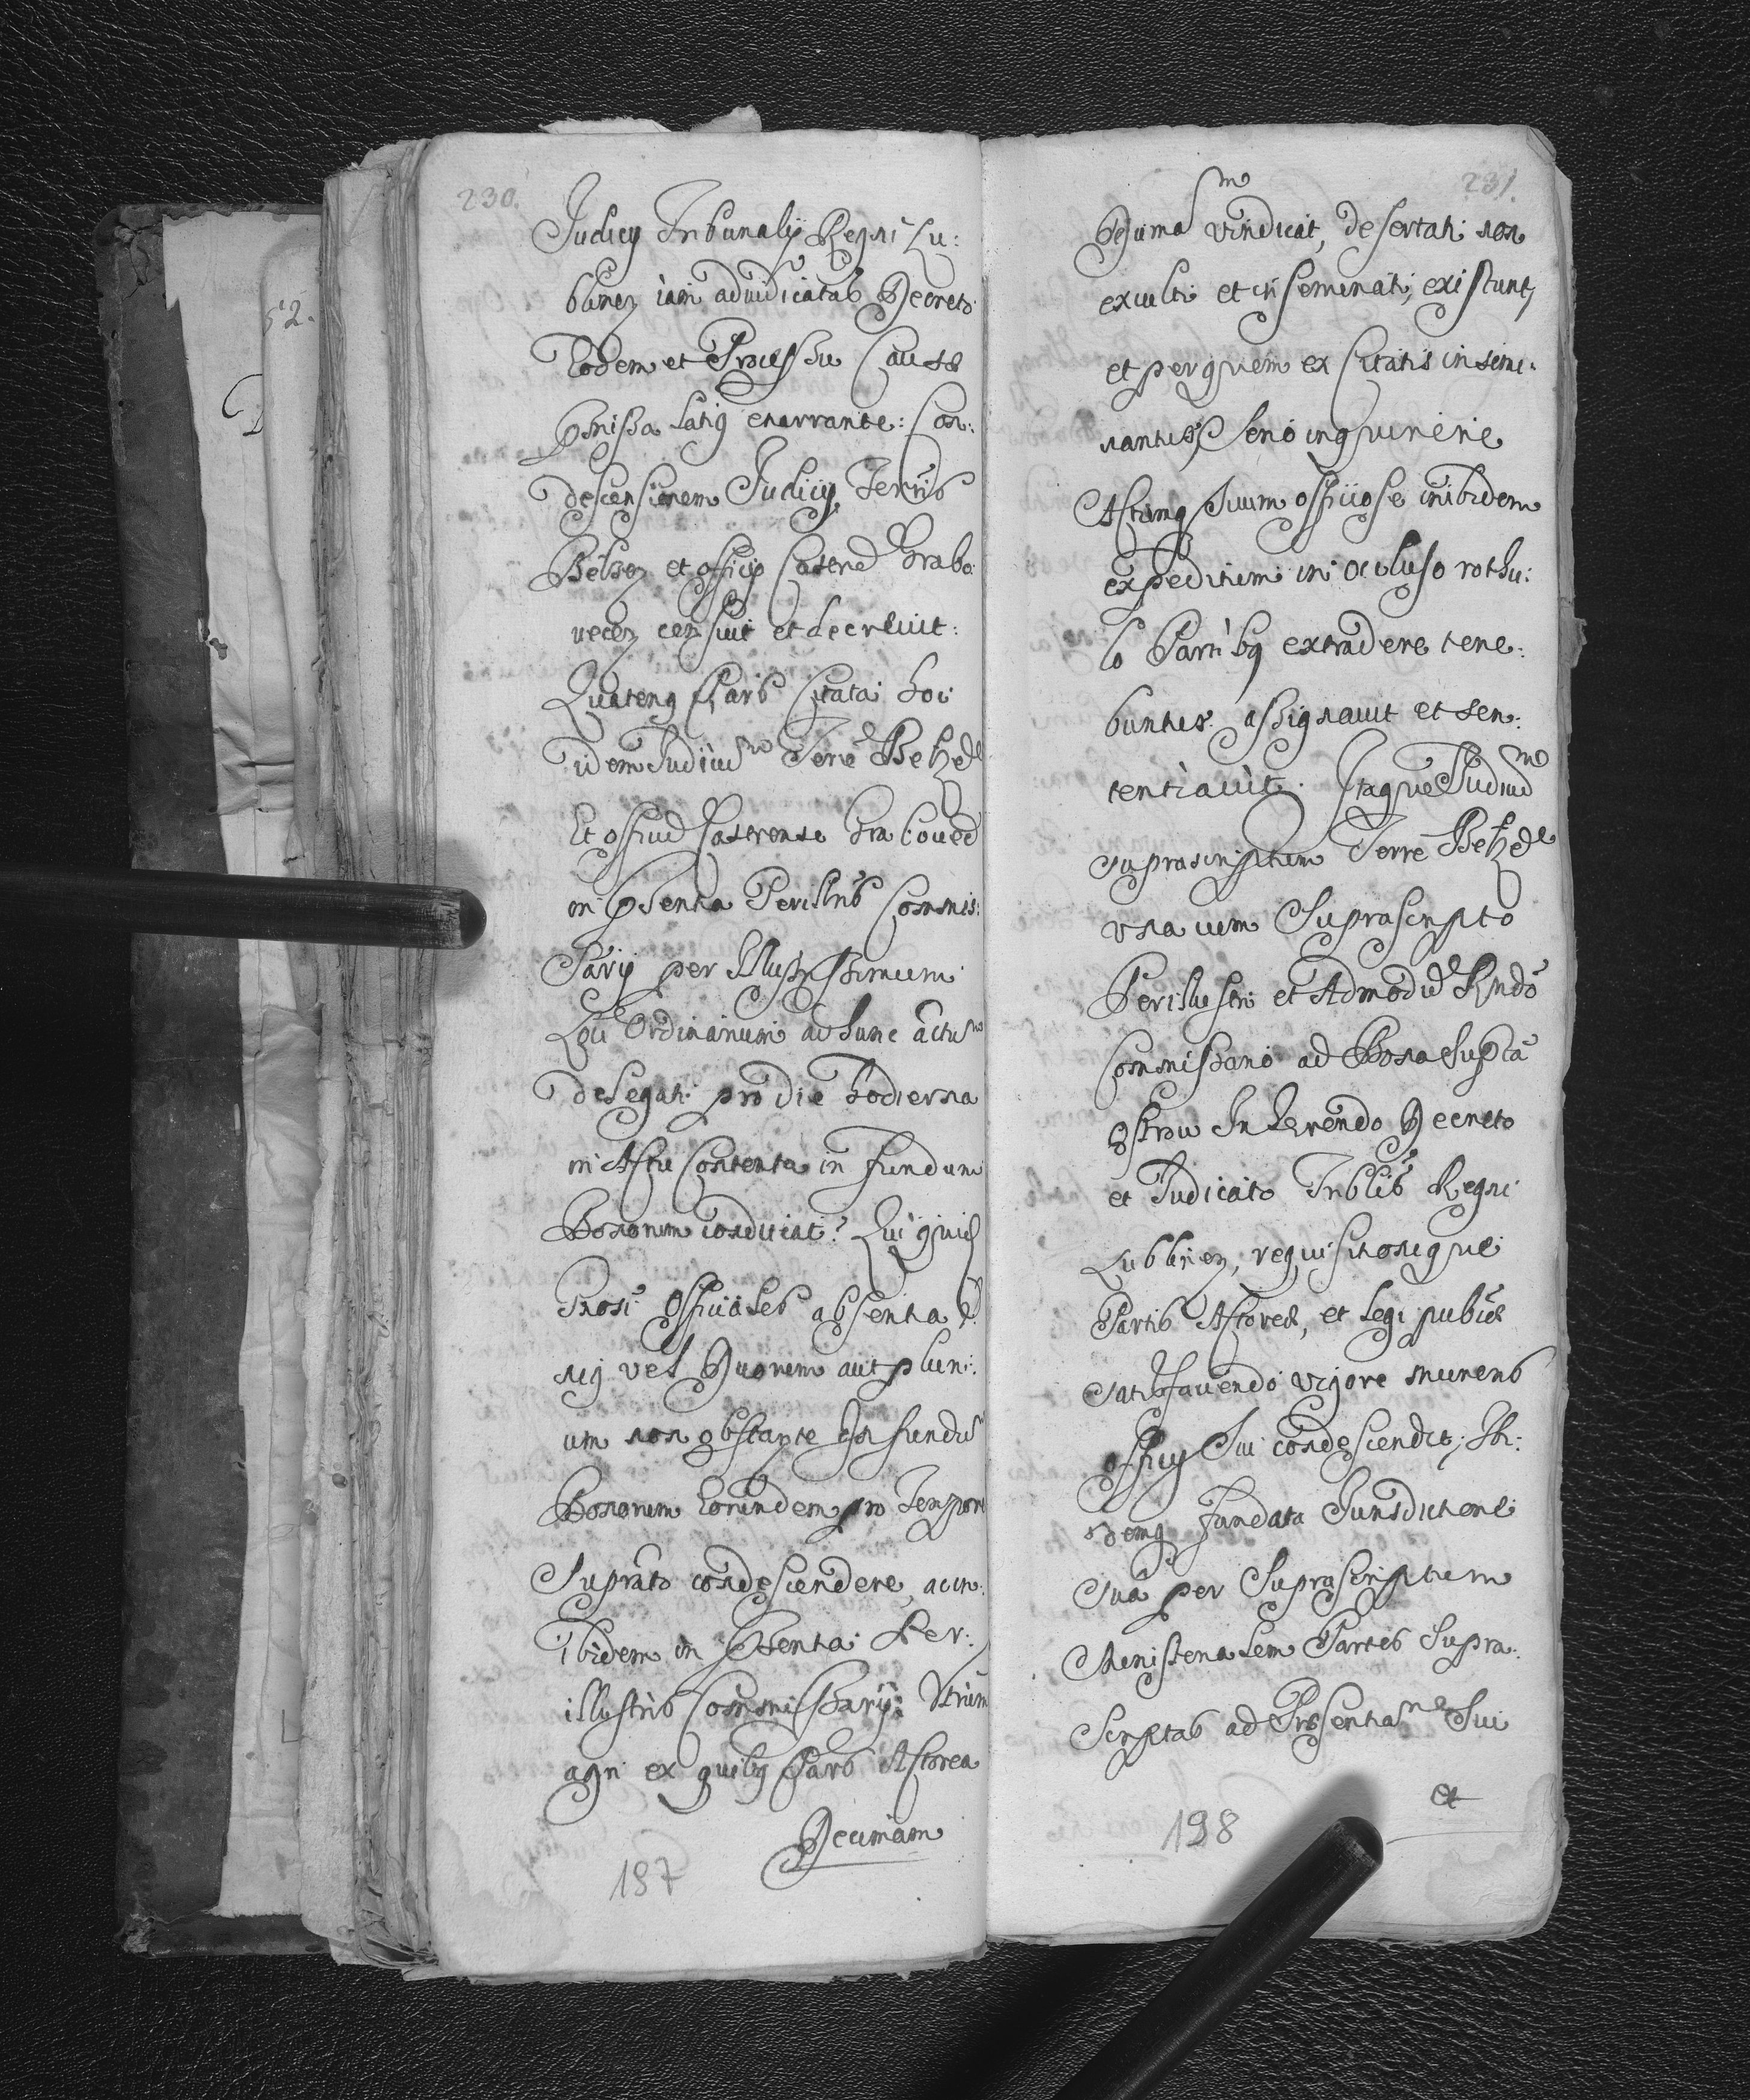 230.
Judicÿ Tribunalÿ Regni Lu:
blinen iam adiudicatas Decreto
Eodem et Processu Causæ
præmissa latiq enarrante: Con:
descensionem Judicÿ Terrïs
Belzen et officÿ Castren Grabo:
vecen censuit et decrevit:
Quatenq Pars Citata hoc
idem Judiciu Terre Belzen
Et officiu Castrense Graboved
in præsentia Perillris Commis:
sarÿ per Illustrissimum
Loci Ordinarium ad hunc actum
delegati pro die hodierna
in Actu Contenta in fundum
Bonorum conducat: Qui quid
Proni Officiales absentia
niq vel Duorum aut pluri:
um non obstante in fundu
Bonorum Eorundem pro Tempore
Suprato condescendere, ac in:
Ibidem in præsentia Per:
illustris Commissarÿ: Utrum
agri ex quibq Pars Actorea
Decimam
187
231.
Decimam vindicat, desertati non
exculti et inseminati, existunt,
et per quem ex Citatis insemi:
nantur Serio inquirere
Actumq suum officiose inibidem
expeditum in ocluso rothu:
lo Partibq extradere tene:
buntur assignavit et sen:
tentiavit. Itaque Judiciu
suprascriptum Terre Belzen
una cum Suprascripto
Perillustri et Admodu Rndo
Commissario ad Bona Supta
Ostrow Inhærendo Decreto
et Judicato Triblïs Regni
Lublinen, requisitioniqque
Partis Actoreæ, et legi publicæ
satisfaciendo vigore muneris
officÿ Sui condescendit, Ibi:
demq fundata Jurisdictione
sua per Suprascriptum
Ministerialem Partes Supra:
Scriptas ad Præsentiam Sui
et
198